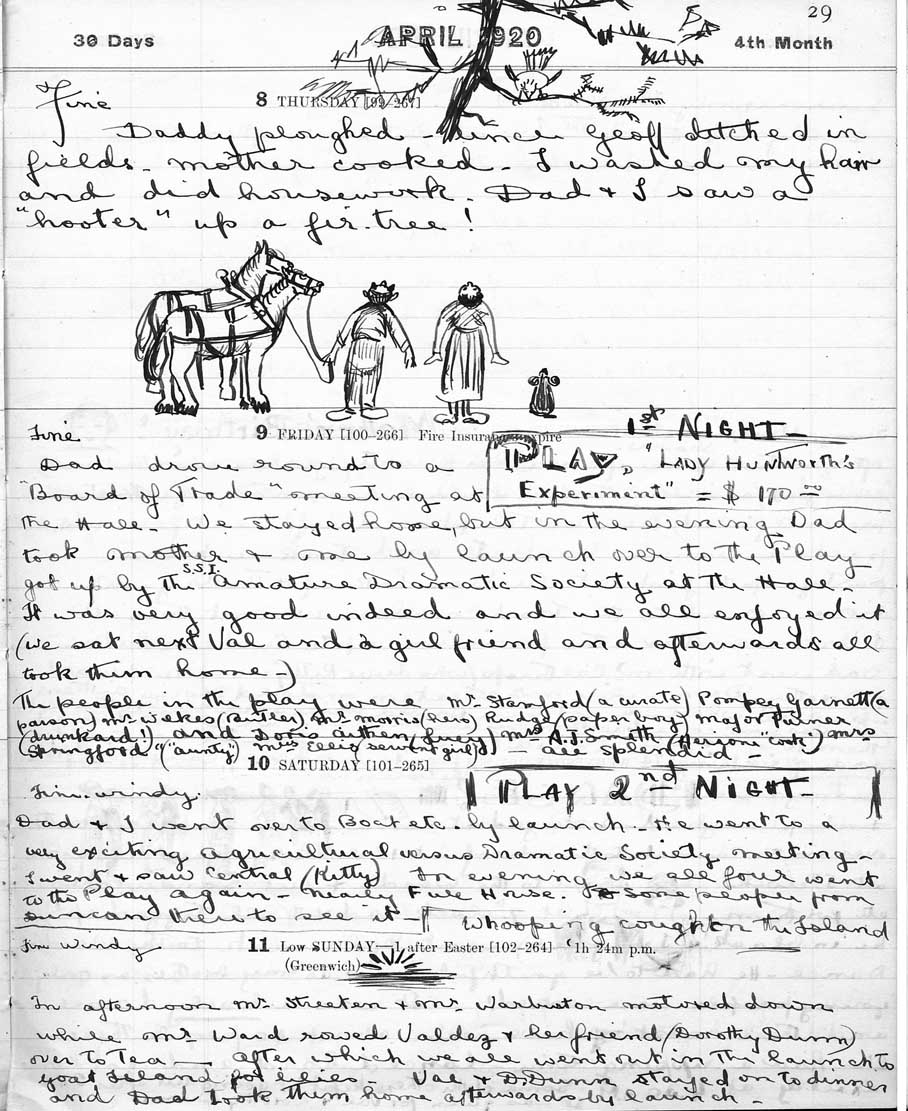 29
30 Days
APRIL 1920
4th Month
Fine
8 THURSDAY [99-267]
Daddy ploughed - since Geoff ditched in
fields - mother cooked - I washed my hair
and did housework. Dad & I saw a
"hooter" up a fir-tree!
Fine
9 FRIDAY [100-266] Fire Insurances expire
1st NIGHT -
Dad drove round to a
PLAY, "LADY HUNTWORTH'S
"Board of Trade" meeting at
Experiment" = $ 170 00
the Hall - We stayed home, but in the evening Dad
took mother & me by launch over to the Play
got up by the S.S.I. Amature Dramatic Society at the Hall -
It was very good indeed and we all enjoyed it
(we sat next Val and a girl friend and afterwards all
took them home -)
The people in the play were Mr Stamford (a curate) Pompey Garnett (a
parson) Mr Wekes (Butler) Mr Morris (hero) Rudge (paper boy) Major Turner
(drunkard!) and Doris Aitken (Lucy) Mrs A.J. Smith (Heroine "cook") Mrs
Springford ("aunty") Miss Ellis servant girl) - all splendid -
10 SATURDAY [101-265]
Fine. windy.
PLAY 2nd NIGHT -
Dad & I went over to Boat etc. by launch - He went to a
very exciting agricultural versus Dramatic Society meeting -
I went & saw Central (Kitty) In evening we all four went
to the Play again - nearly Full House. Some people from
Duncan there to see it -
Whooping cough on the Island
Fine windy
11 Low SUNDAY—1 after Easter [102-264] 1h 24m p.m.
(Greenwich)
In afternoon Mr Streeten & Mr Warburton motored down
while Mr Ward rowed Valdez & her friend (Dorothy Dunn)
over to Tea - After which we all went out in the launch to
Goat Island for lilies - Val & D. Dunn stayed on to dinner
and Dad took them home afterwards by launch -